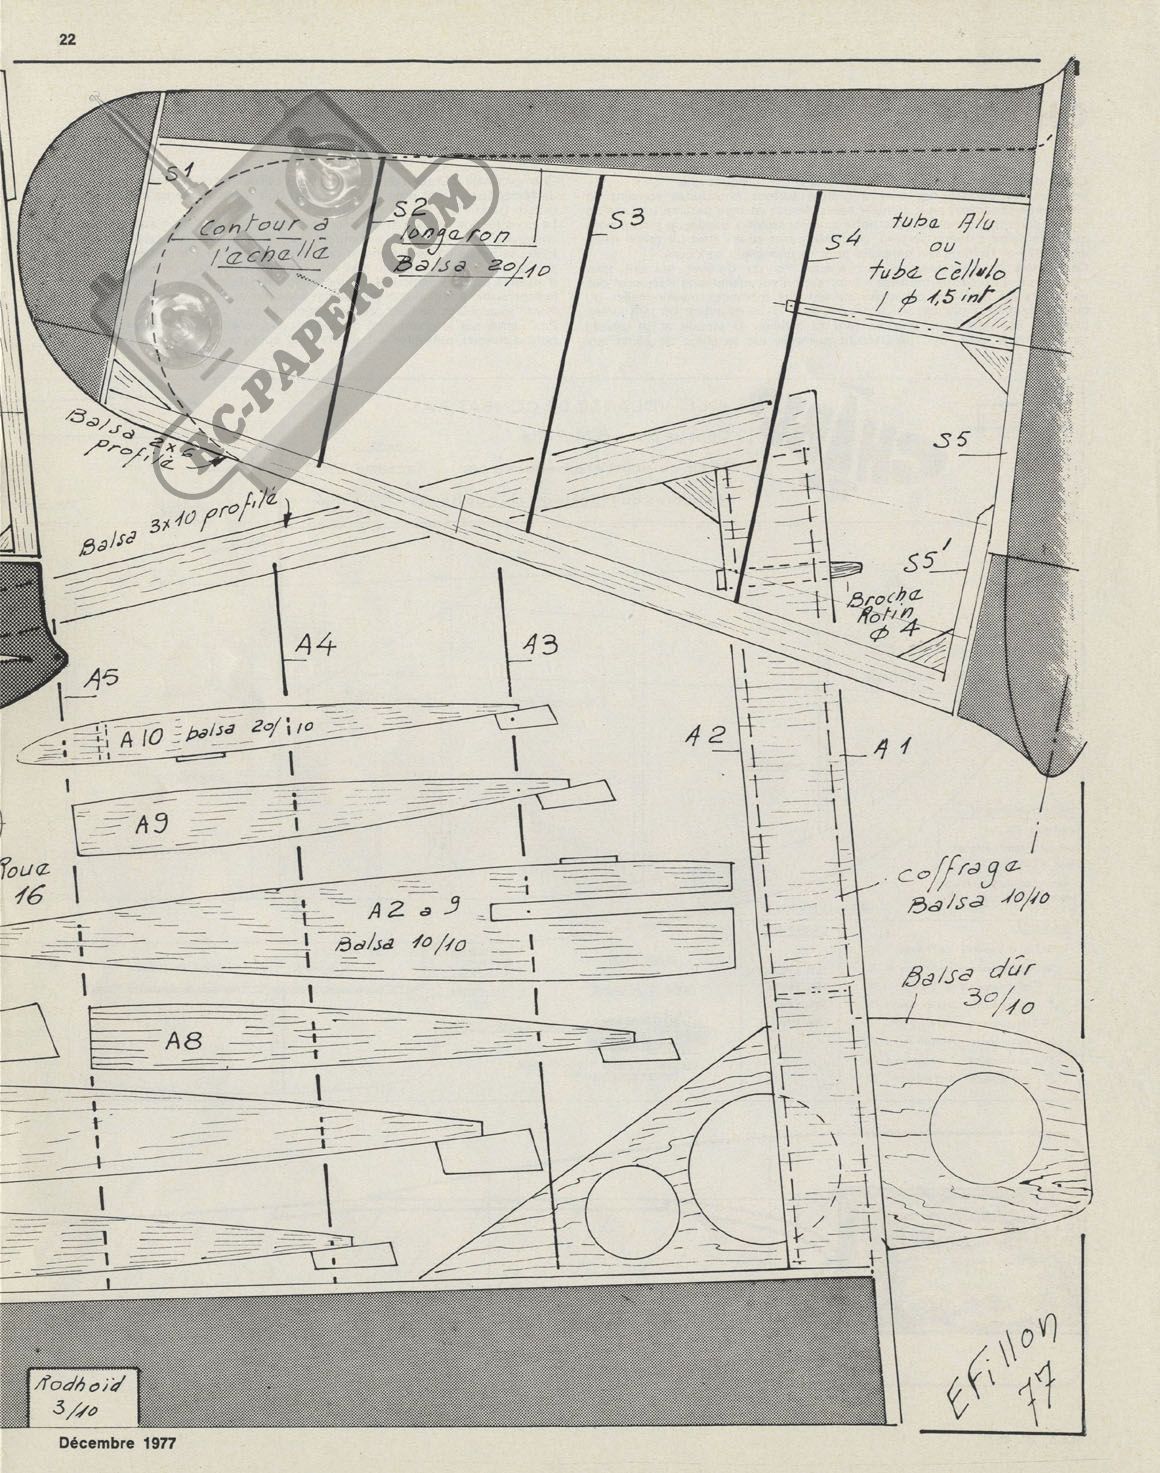 22
S1
S2
S3
S4
contour a
l'echelle
longeron
Balsa 20/10
tube Alu
ou
tube cèllulo
φ 1,5 int
RC-PAPER.COM
Balsa 2x6
profilé
Balsa 3x10 profilé
S5
S5'
Broche
Rotin
φ 4
A5
A4
A3
A10 balsa 20/10
A2
A1
A9
Roue
16
A2 a 9
Balsa 10/10
coffrage
Balsa 10/10
Balsa dûr
30/10
A8
Rodhoïd
3/10
EFillon
77
Décembre 1977